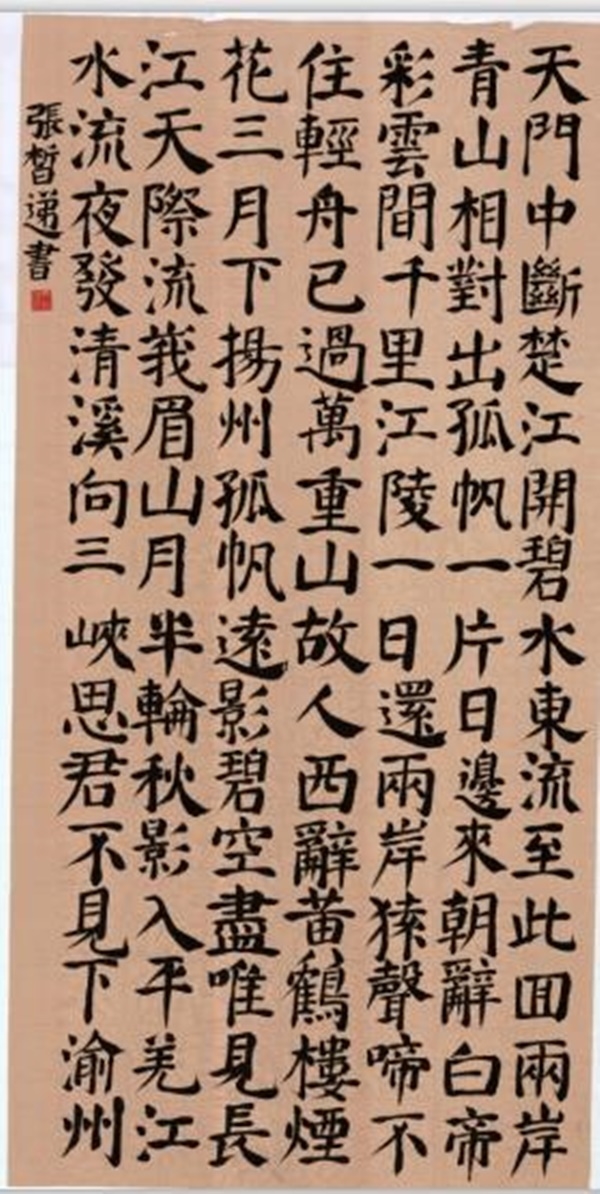 天門中斷楚江開碧水東流至此囬兩岸
青山相對出孤帆一片日邊來朝辭白帝
彩雲間千里江陵一日還兩岸猿聲啼不
住輕舟已過萬重山故人西辭黄鶴樓煙
花三月下揚州孤帆遠影碧空盡唯見長
江天際流莪眉山月半輪秋影入平羌江
水流夜發清溪向三峽思君不見下渝州
張晢递書